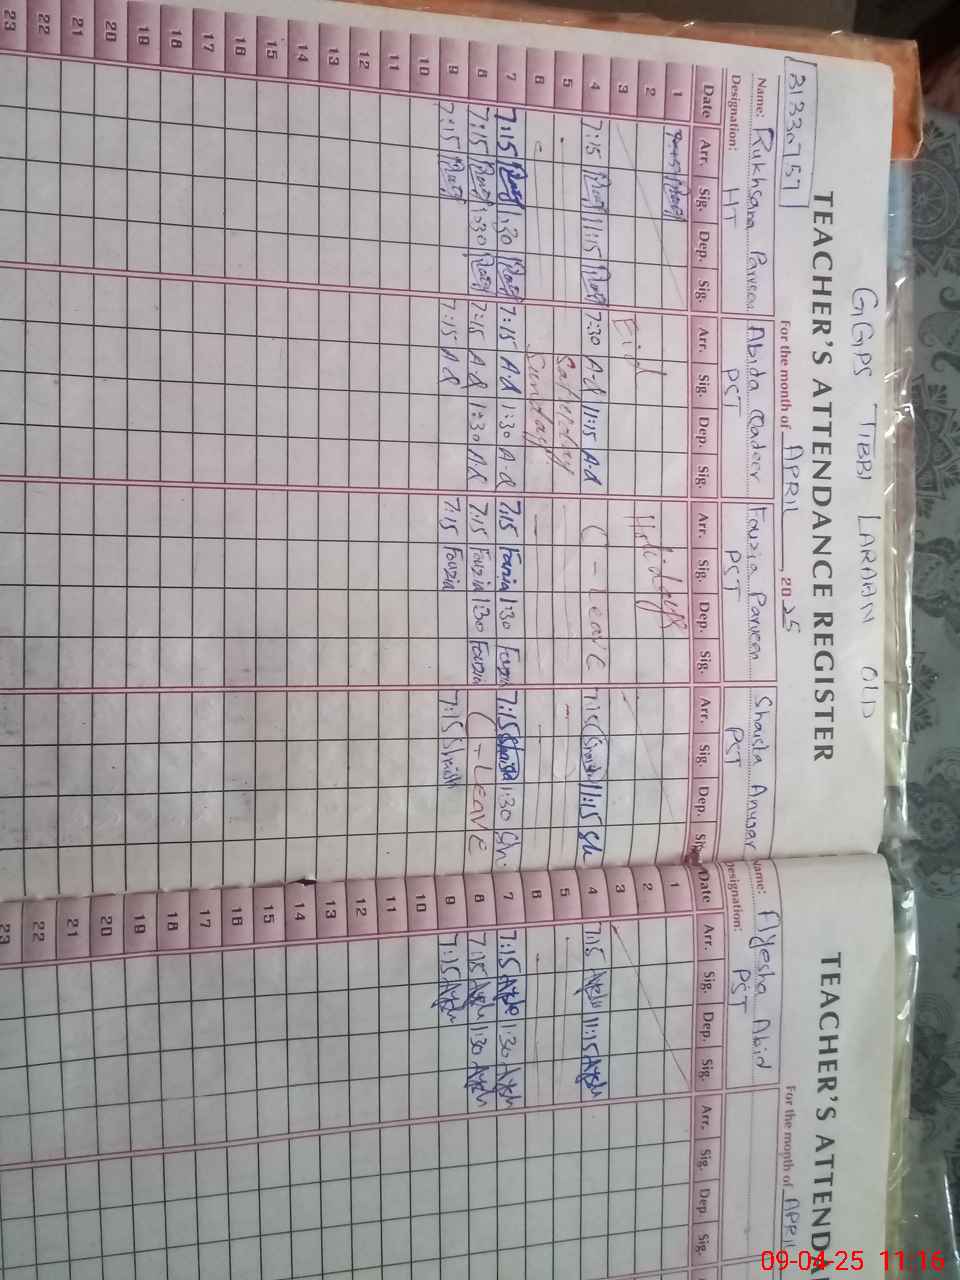 GGPS TIBBI LARAAN OLD
31330757
TEACHER'S ATTENDANCE REGISTER
For the month of APRIL, 2025
Name: Rukhsana Parveen Abida Qadeer Fouzia Parveen Shaista Anwar
Designation: HT PST PST PST
Date Arr. Sig. Dep. Sig. Arr. Sig. Dep. Sig. Arr. Sig. Dep. Sig. Arr. Sig. Dep. Sig.
1
2
3 Eid Holidays
4 7:15 11:15 7:30 A-d 11:15 A-d C-Leave 11:15 Sh
5 Saturday
6 Sunday
7 7:15 1:30 7:15 A-d 1:30 A-d 7:15 Fouzia 1:30 Fouzia 7:15 Shaista 1:30 Sh.
8 7:15 1:30 7:15 A-d 1:30 Ad 7:15 Fouzia 1:30 Fouzia C-LEAVE
9 7:15 7:15 Ad 7:15 Fouzia 7:15
10
11
12
13
14
15
16
17
18
19
20
21
22
23
TEACHER'S ATTENDA
For the month of APRIL
Name: Ayesha Abid
Designation: PST
Date Arr. Sig. Dep. Sig. Arr. Sig. Dep. Sig.
1
2
3
4 7:15 Aysh 11:15 Aysh
5
6
7 7:15 Aysh 1:30 Aysh
8 7:15 Aysh 1:30 Aysh
9 7:15 Aysh
10
11
12
13
14
15
16
17
18
19
20
21
22
23
09-04-25 11:16